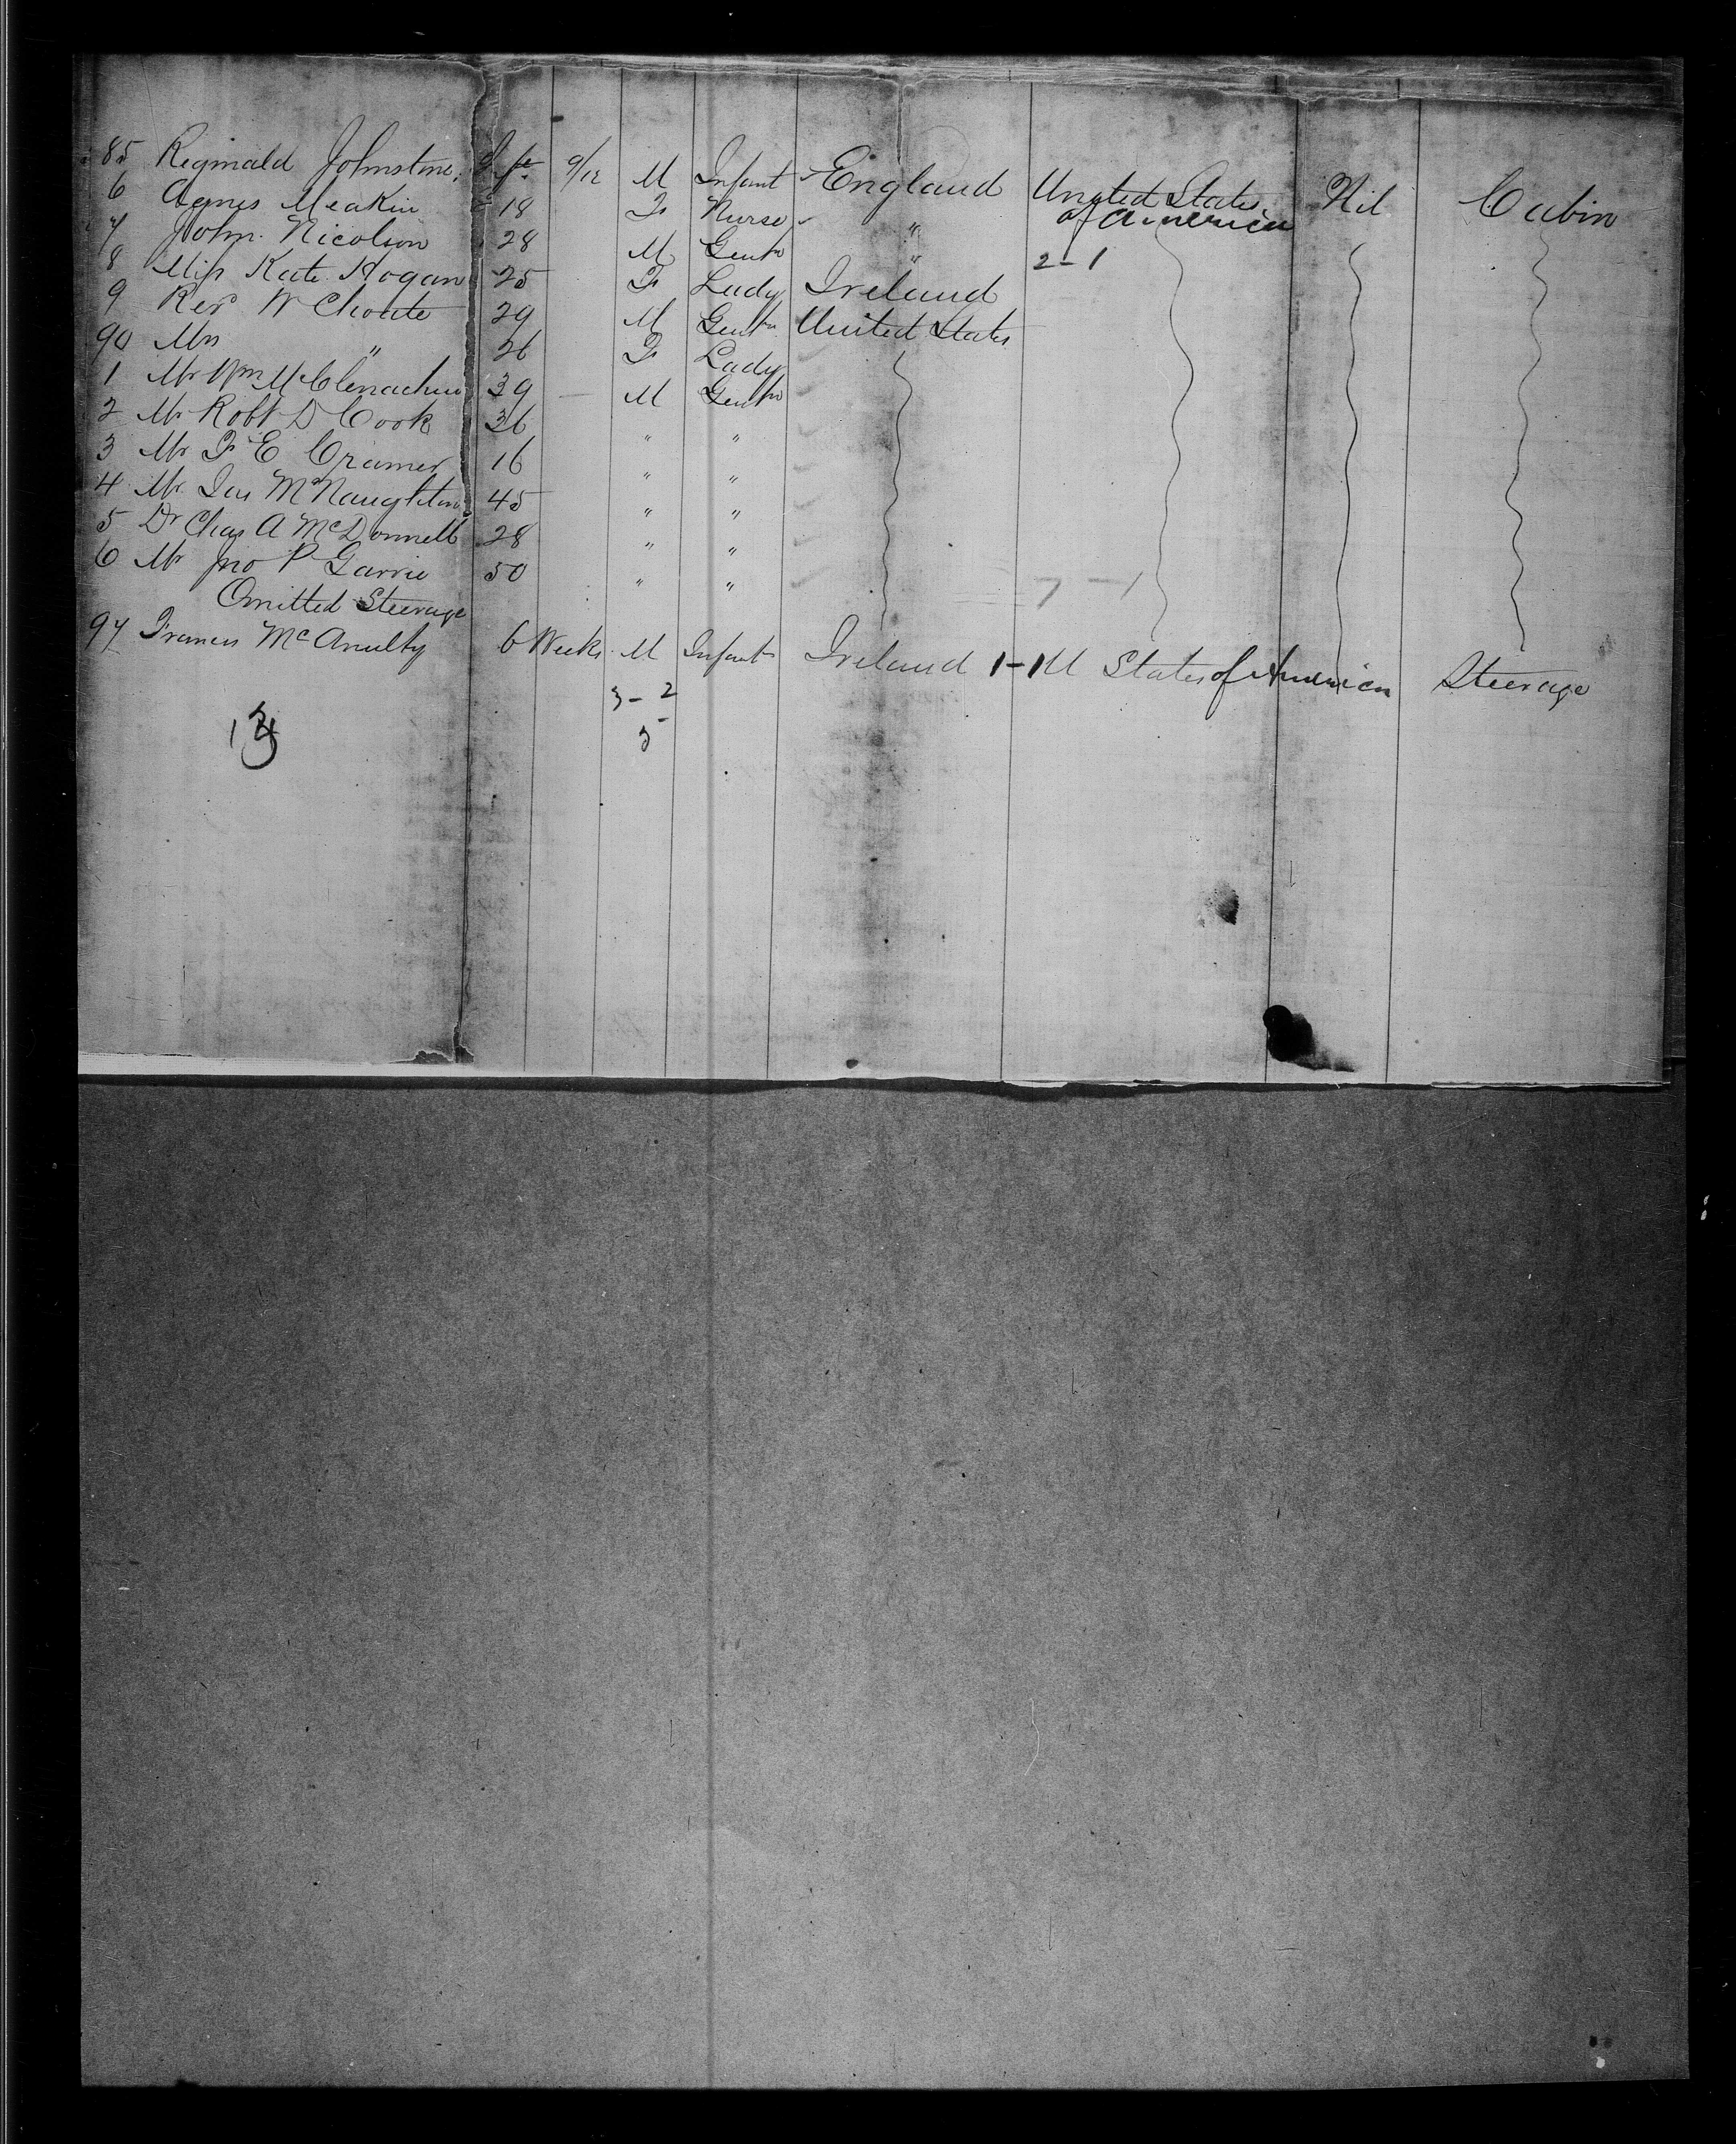 85 Reginald Johnstone Inft 9/12 M Infant England United States of America Nil Cabin
6 Agnes Meakin 18 F Nurse "
7 John Nicolson 28 M Gentn " 2-1
8 Miss Kate Hogan 25 F Lady Ireland
9 Rev W Choate 29 M Gentn United States
90 Mrs " 26 F Lady
1 Mr Wm McClenachan 39 M Gentn
2 Mr Robt D Cook 36 " "
3 Mr F E Cramer 16 " "
4 Mr Jas McNaughton 45 " "
5 Dr Chas A McDonnell 28 " "
6 Mr Jno P Garvie 50 " " 7-1
Omitted Steerage
97 Francis McAnulty 6 Weeks M Infant Ireland 1-1 U States of America Steerage
3-2
5